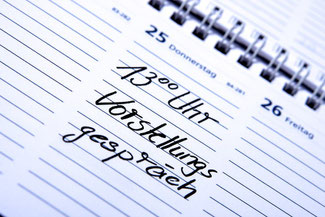 25 Donnerstag
13⁰⁰ Uhr
Vorstellungs
gespräch
26 Freitag